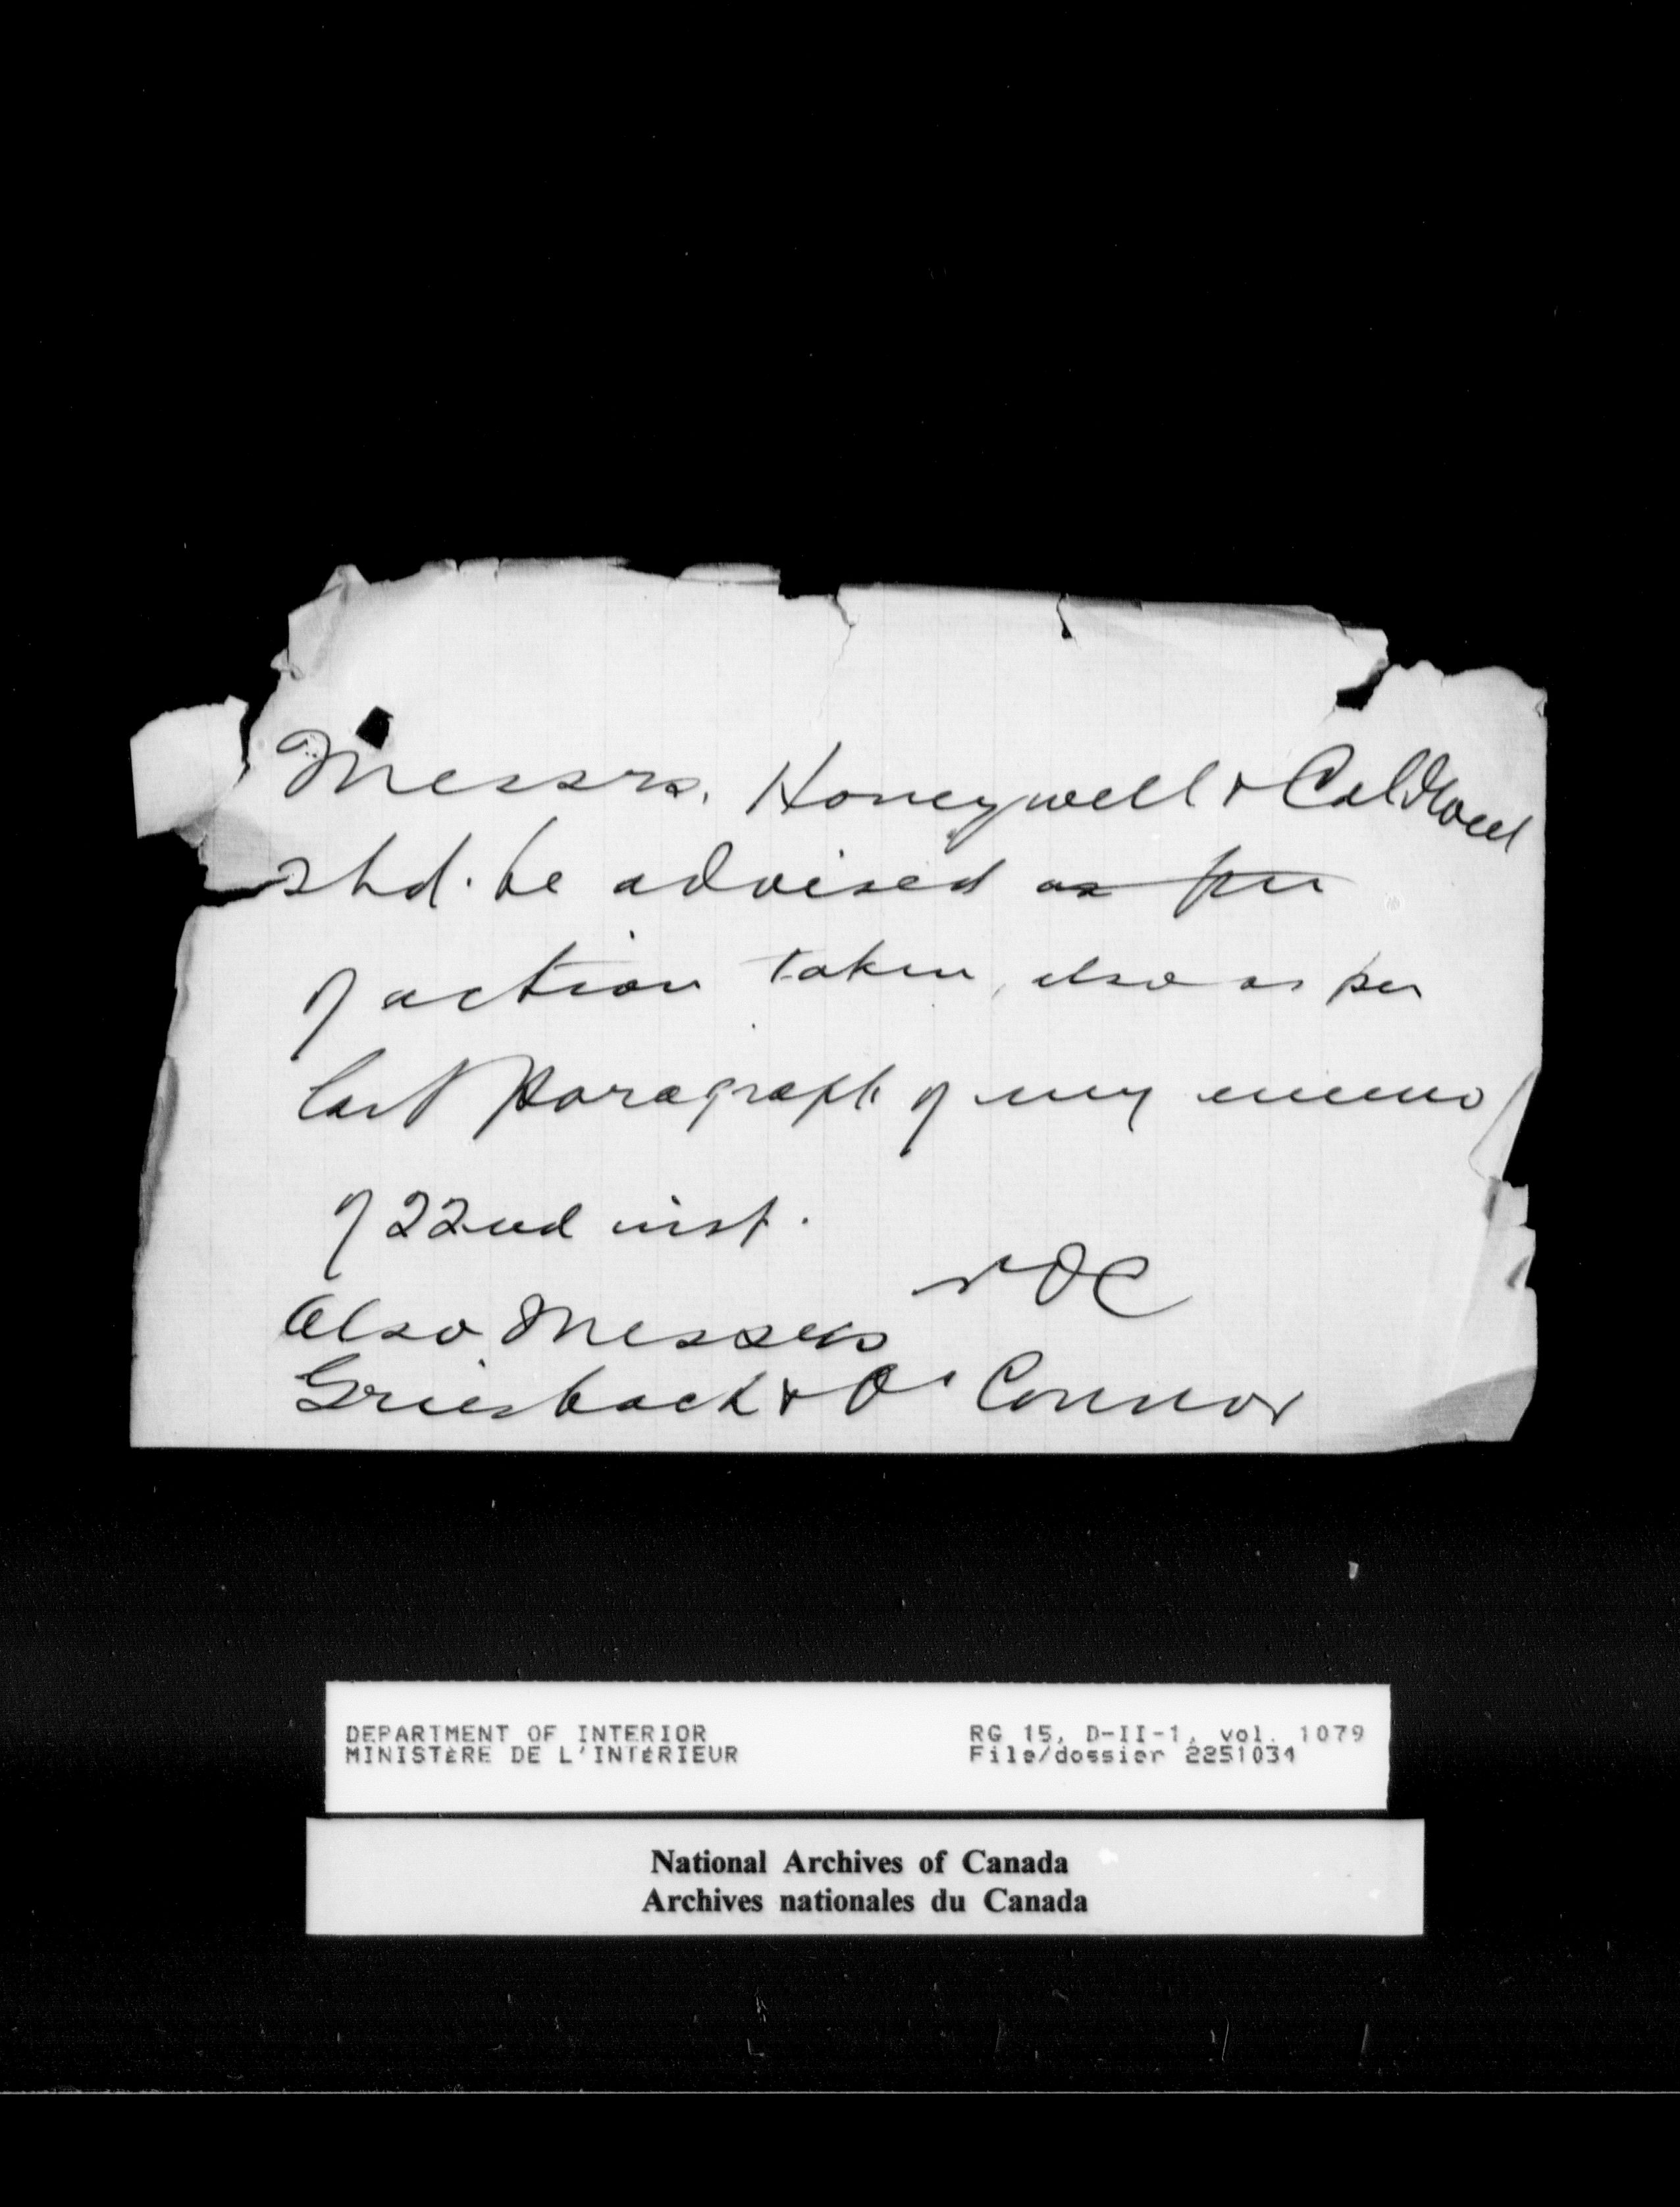 Messrs. Honeywell & Caldwell
shd. be advised as per
of action taken, also as per
last Paragraph of my memo
of 22nd inst.
Also Messers
Griesbach & O'Connor
DEPARTMENT OF INTERIOR
MINISTÈRE DE L'INTÉRIEUR
RG 15, D-II-1, vol. 1079
File/dossier 2251034
National Archives of Canada
Archives nationales du Canada